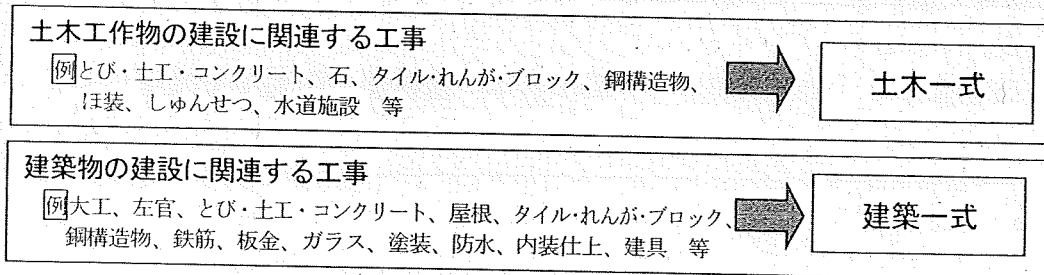 土木工作物の建設に関連する工事
例とび・土工・コンクリート、石、タイル・れんが・ブロック、鋼構造物、
ほ装、しゅんせつ、水道施設 等
土木一式
建築物の建設に関連する工事
例大工、左官、とび・土工・コンクリート、屋根、タイル・れんが・ブロック、
鋼構造物、鉄筋、板金、ガラス、塗装、防水、内装仕上、建具 等
建築一式